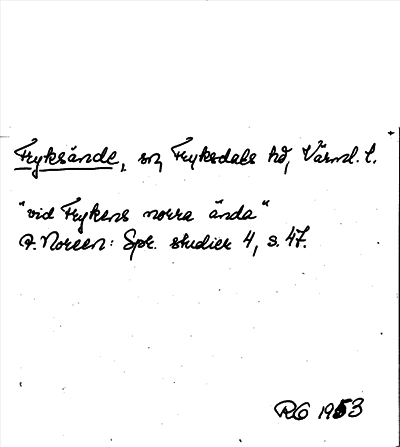 Fryksände, sn, Fryksdals hd, Värml. l.
"vid Frykens norra ända"
A. Noreen: Spr. studier 4, s. 47.
RG 1953